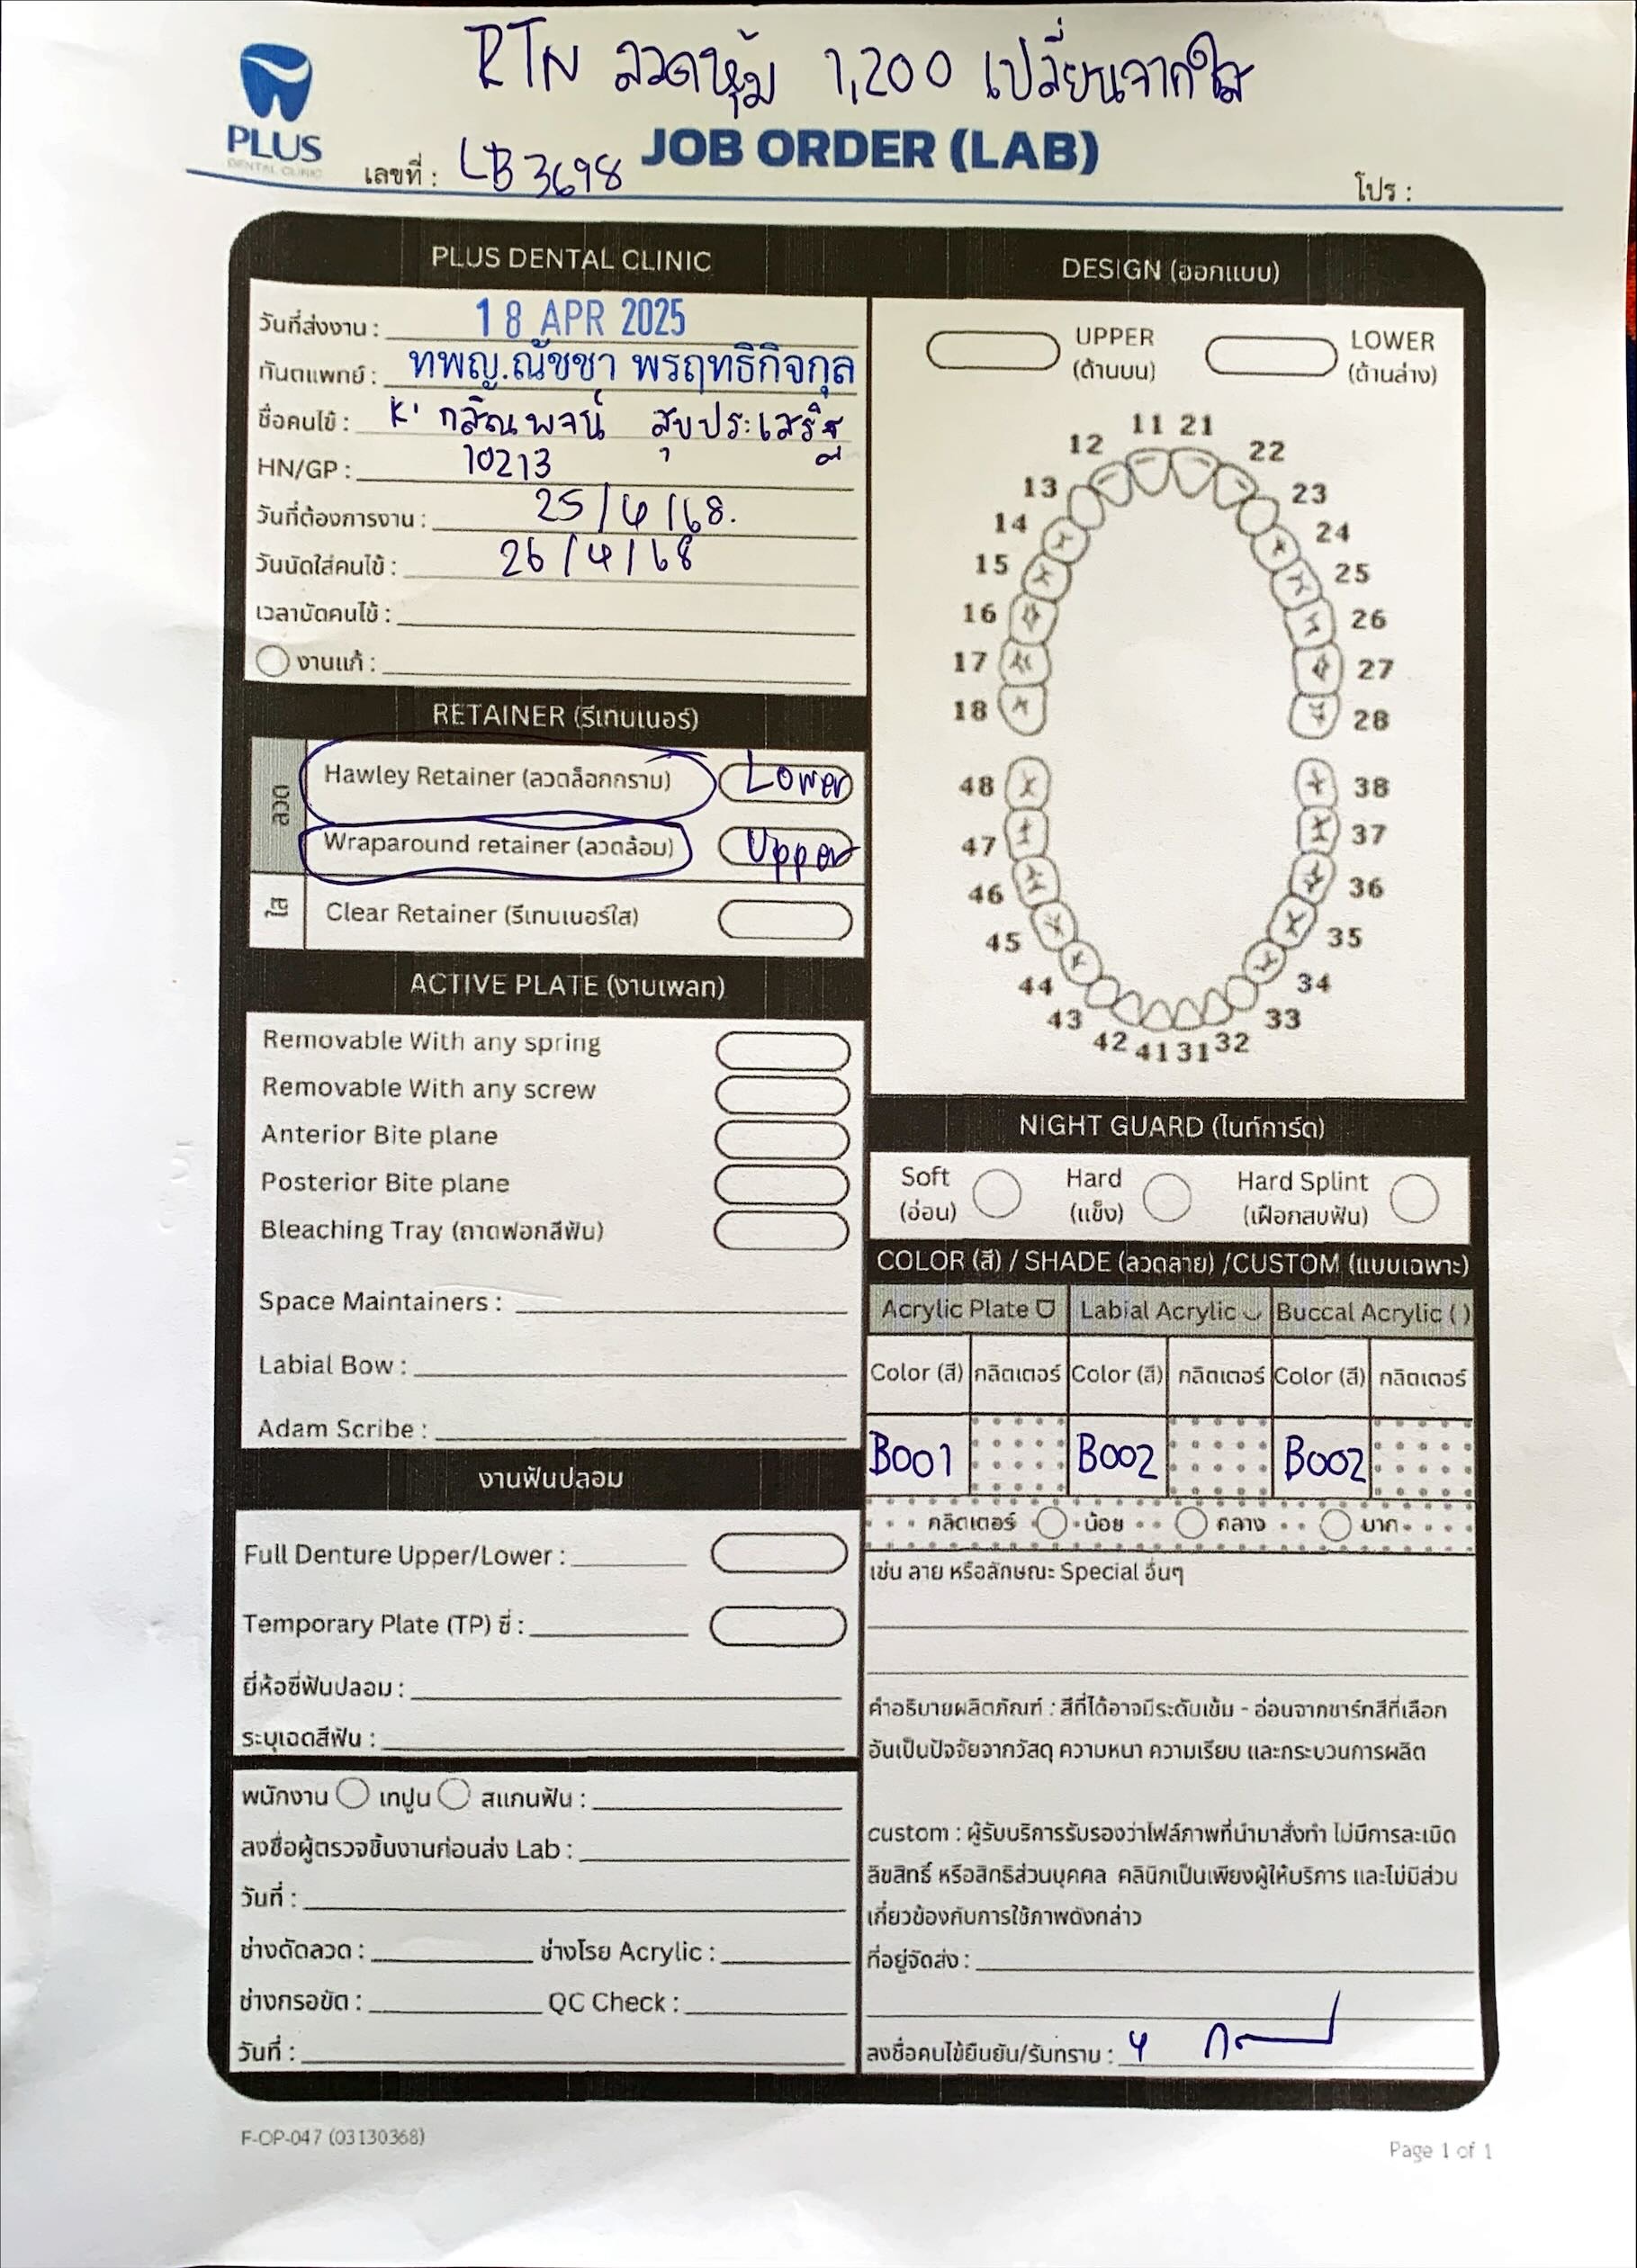 RTN ลวดหุ้ม 1,200 เปลี่ยนจากใส
PLUS
DENTAL CLINIC
เลขที่ : LB3698
JOB ORDER (LAB)
โปร :
PLUS DENTAL CLINIC
วันที่ส่งงาน : 18 APR 2025
ทันตแพทย์ : ทพญ.ณัชชา พรฤทธิกิจกุล
ชื่อคนไข้ : K' กสิณพจน์ สุขประเสริฐ
HN/GP : 10213
วันที่ต้องการงาน : 25/4/68.
วันนัดใส่คนไข้ : 26/4/68
เวลานัดคนไข้ :
งานแก้ :
RETAINER (รีเทนเนอร์)
ลวด
Hawley Retainer (ลวดล็อกกราม) Lower
Wraparound retainer (ลวดล้อม) Upper
ใส
Clear Retainer (รีเทนเนอร์ใส)
ACTIVE PLATE (งานเพลท)
Removable With any spring
Removable With any screw
Anterior Bite plane
Posterior Bite plane
Bleaching Tray (ถาดฟอกสีฟัน)
Space Maintainers :
Labial Bow :
Adam Scribe :
งานฟันปลอม
Full Denture Upper/Lower :
Temporary Plate (TP) ซี่ :
ยี่ห้อซี่ฟันปลอม :
ระบุเฉดสีฟัน :
พนักงาน เทปูน สแกนฟัน :
ลงชื่อผู้ตรวจชิ้นงานก่อนส่ง Lab :
วันที่ :
ช่างดัดลวด : ช่างโรย Acrylic :
ช่างกรอขัด : QC Check :
วันที่ :
DESIGN (ออกแบบ)
UPPER (ด้านบน) LOWER (ด้านล่าง)
11 21
12 22
13 23
14 24
15 25
16 26
17 27
18 28
48 38
47 37
46 36
45 35
44 34
43 33
42 41 31 32
NIGHT GUARD (ไนท์การ์ด)
Soft (อ่อน) Hard (แข็ง) Hard Splint (เฝือกสบฟัน)
COLOR (สี) / SHADE (ลวดลาย) /CUSTOM (แบบเฉพาะ)
Acrylic Plate Labial Acrylic Buccal Acrylic ( )
Color (สี) กลิตเตอร์ Color (สี) กลิตเตอร์ Color (สี) กลิตเตอร์
B001 B002 B002
กลิตเตอร์ น้อย กลาง มาก
เช่น ลาย หรือลักษณะ Special อื่นๆ
คำอธิบายผลิตภัณฑ์ : สีที่ได้อาจมีระดับเข้ม - อ่อนจากชาร์ทสีที่เลือก
อันเป็นปัจจัยจากวัสดุ ความหนา ความเรียบ และกระบวนการผลิต
custom : ผู้รับบริการรับรองว่าไฟล์ภาพที่นำมาสั่งทำ ไม่มีการละเมิด
ลิขสิทธิ์ หรือสิทธิส่วนบุคคล คลินิกเป็นเพียงผู้ให้บริการ และไม่มีส่วน
เกี่ยวข้องกับการใช้ภาพดังกล่าว
ที่อยู่จัดส่ง :
ลงชื่อคนไข้ยืนยัน/รับทราบ :
F-OP-047 (03130368)
Page 1 of 1